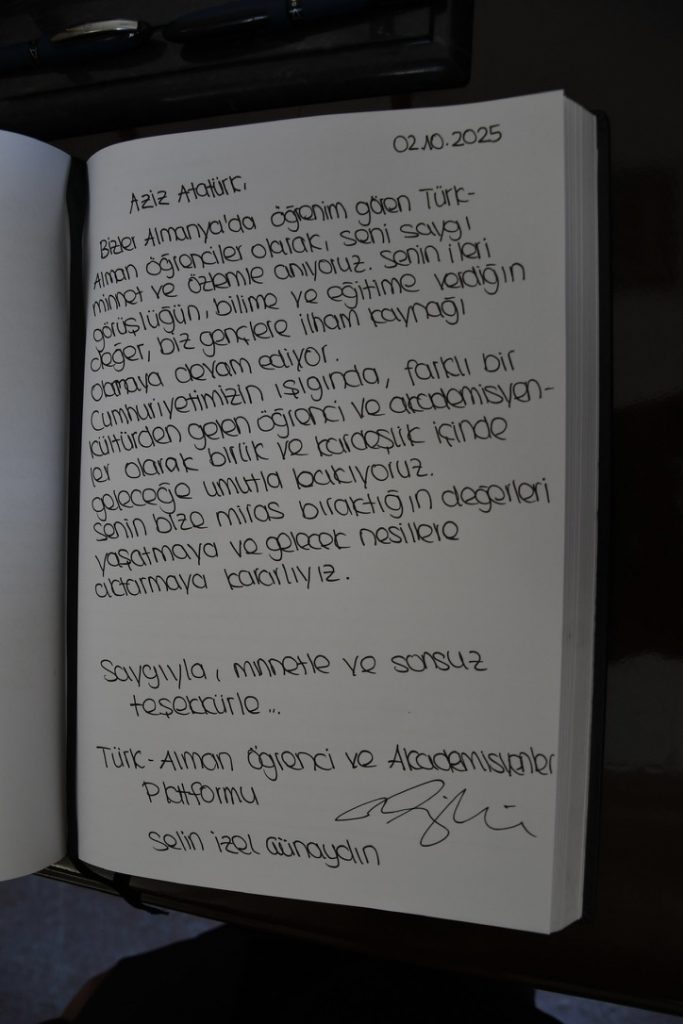 02.10.2025
Aziz Atatürk,
Bizler Almanya'da öğrenim gören Türk-
Alman öğrenciler olarak, seni saygı
minnet ve özlemle anıyoruz. Senin ileri
görüşlüğün, bilime ve eğitime verdiğin
değer, biz gençlere ilham kaynağı
olamaya devam ediyor.
Cumhuriyetimizin ışıgında, farklı bir
kültürden gelen öğrenci ve akademisyen-
ler olarak birlik ve kardeşlik içinde
geleceğe umutla bakıyoruz.
Senin bize miras bıraktığın değerleri
yaşatmaya ve gelecek nesillere
aktarmaya kararlıyız.
Saygıyla, minnetle ve sonsuz
teşekkürle...
Türk-Alman Öğrenci ve Akademisyenler
Plattformu
Selin izel Günaydın